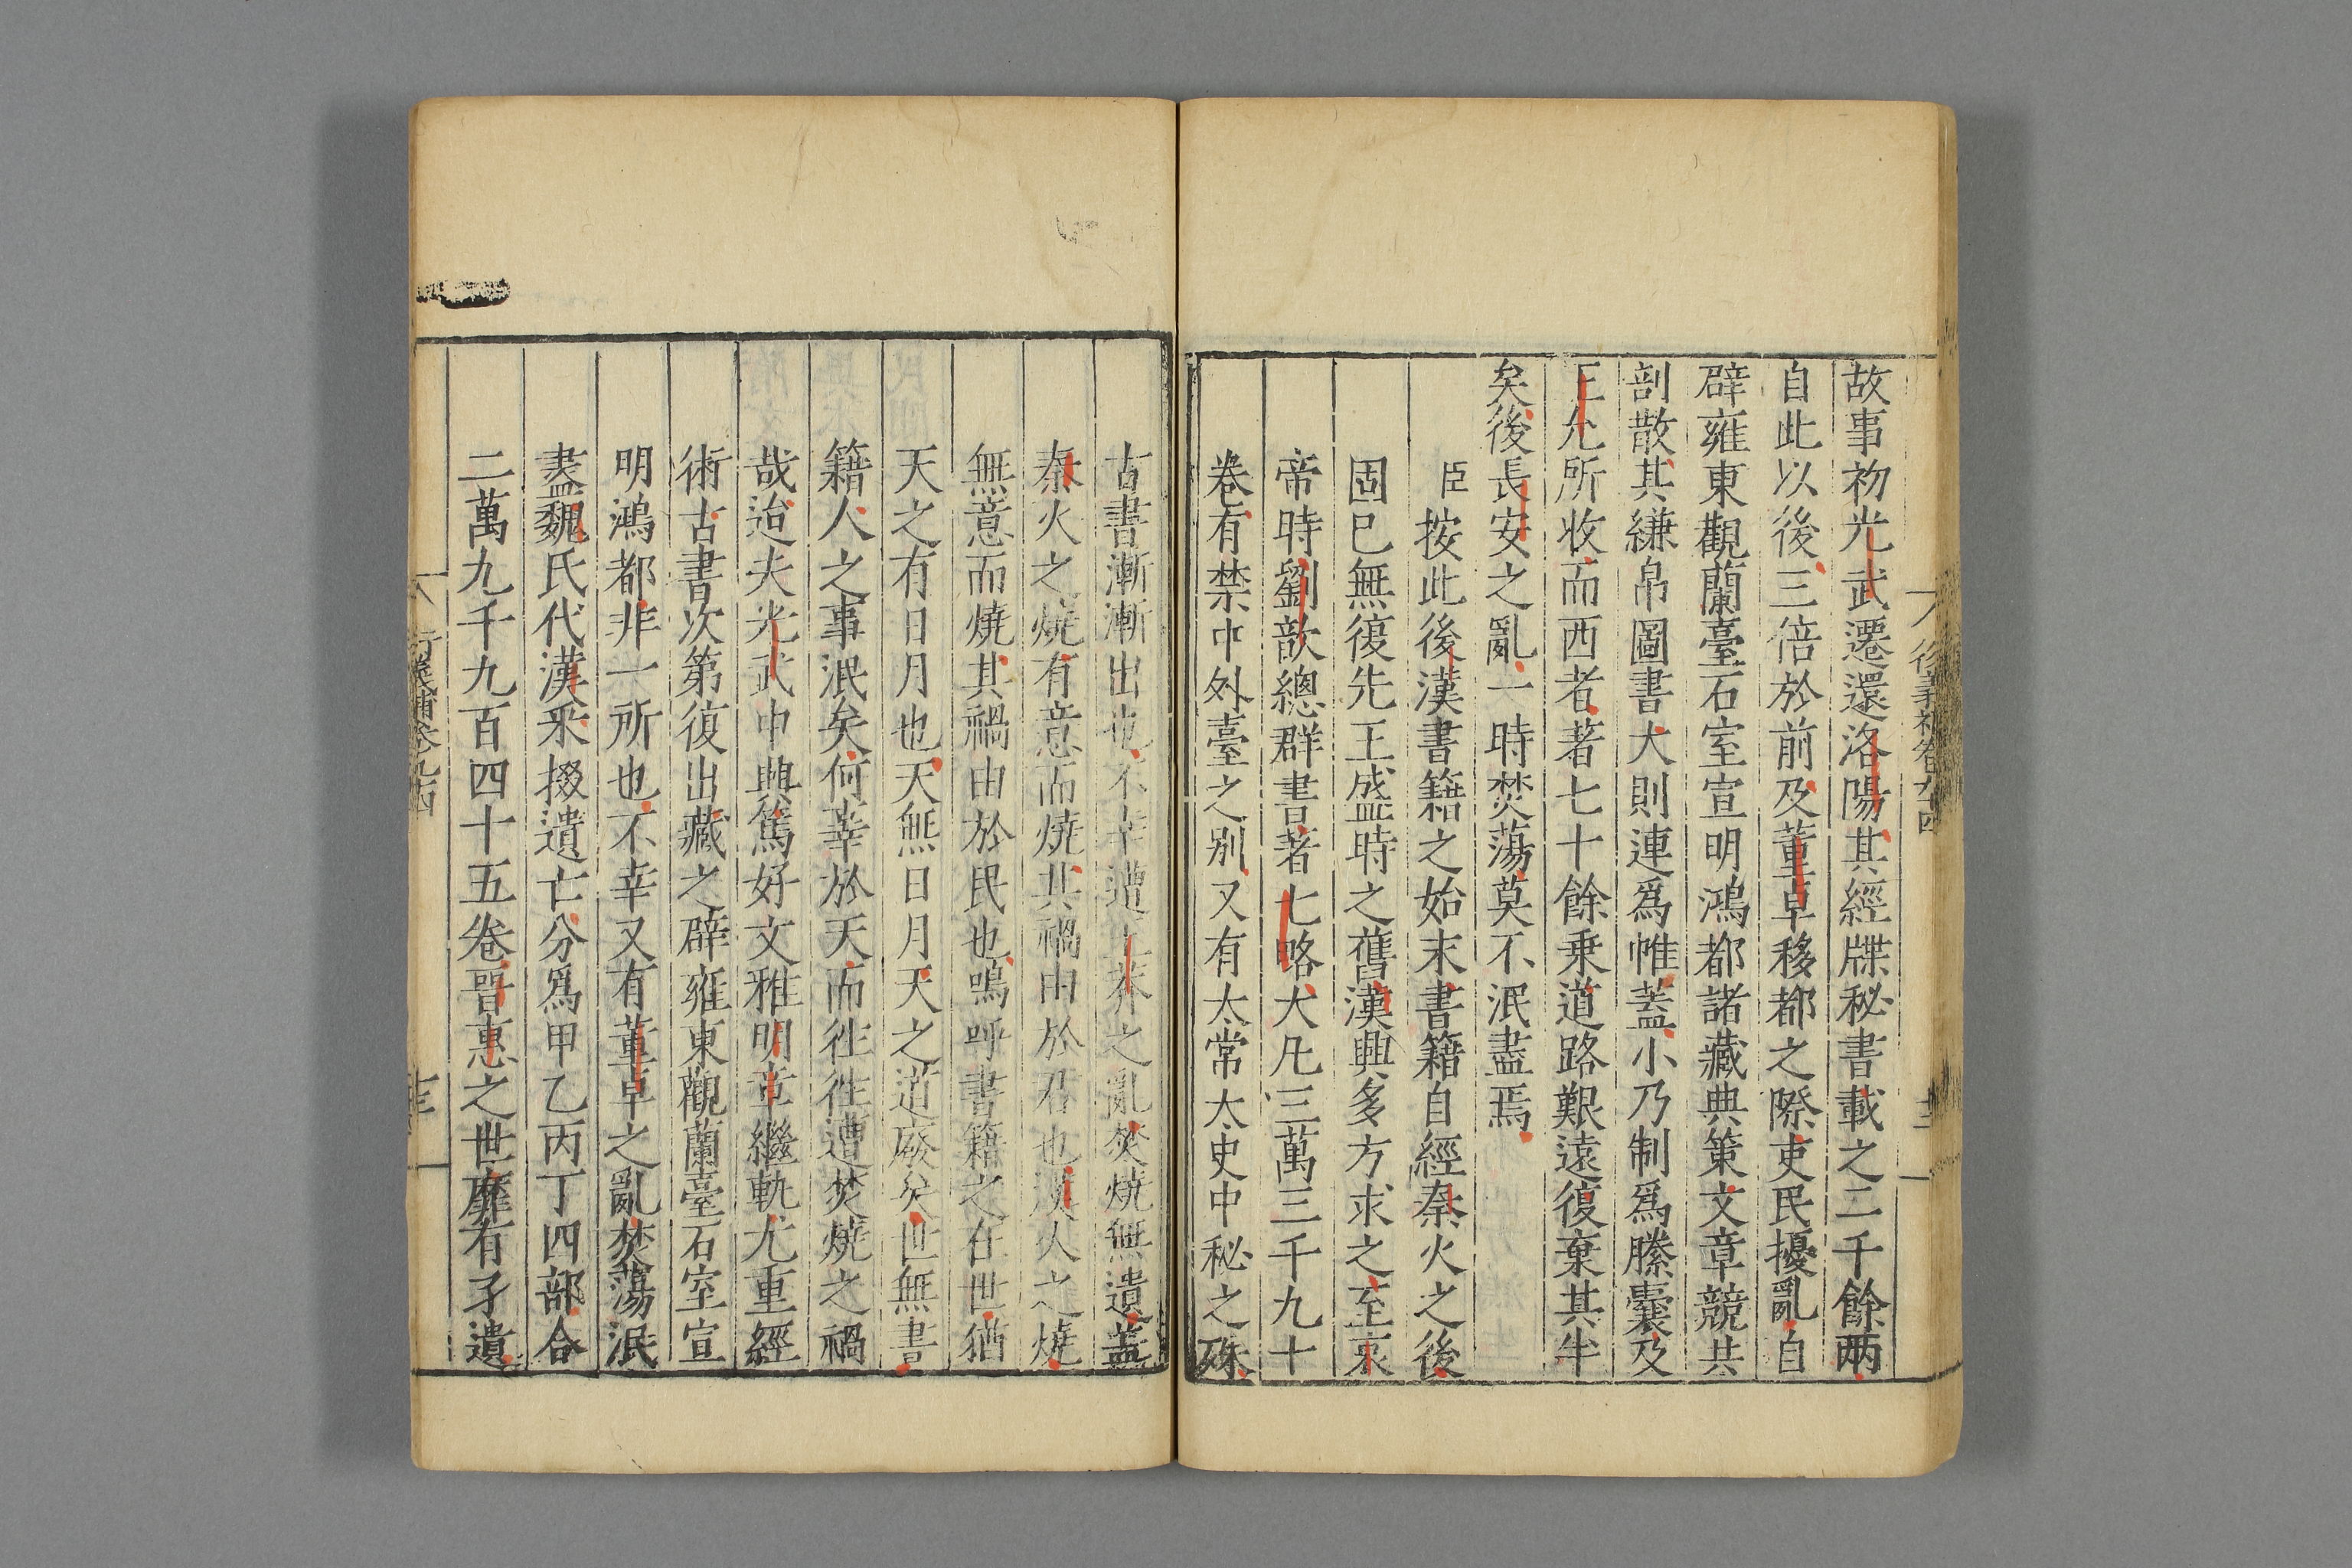 故事初光武遷還洛陽其經牒秘書載之二千餘兩
自此以後三倍於前及董卓移都之際吏民擾亂自
辟雍東觀蘭臺石室宣明鴻都諸藏典策文章競共
剖散其縑帛圖書大則連爲帷蓋小乃制爲縢囊及
王允所收而西者著七十餘乗道路艱遠復棄其半
矣後長安之亂一時焚蕩莫不泯盡焉
臣按此後漢書籍之始末書籍自經秦火之後
固已無復先王盛時之舊漢興多方求之至哀
帝時劉歆總群書著七略大凡三萬三千九十
卷有禁中外臺之别又有太常太史中秘之殊
古書漸漸出也不幸遭王莽之亂焚燒無遺盖
秦火之燒有意而燒其禍由於君也漢火之燒
無意而燒其禍由於民也嗚呼書籍之在世猶
天之有日月也天無日月天之道廢矣世無書
籍人之事泯矣何幸於天而往往遭焚燒之禍
哉迨夫光武中興篤好文雅明章繼軌尤重經
術古書次第復出藏之辟雍東觀蘭臺石室宣
明鴻都非一所也不幸又有董卓之亂焚蕩泯
盡魏氏代漢采掇遺亡分爲甲乙丙丁四部合
二萬九千九百四十五卷晉惠之世靡有孑遺